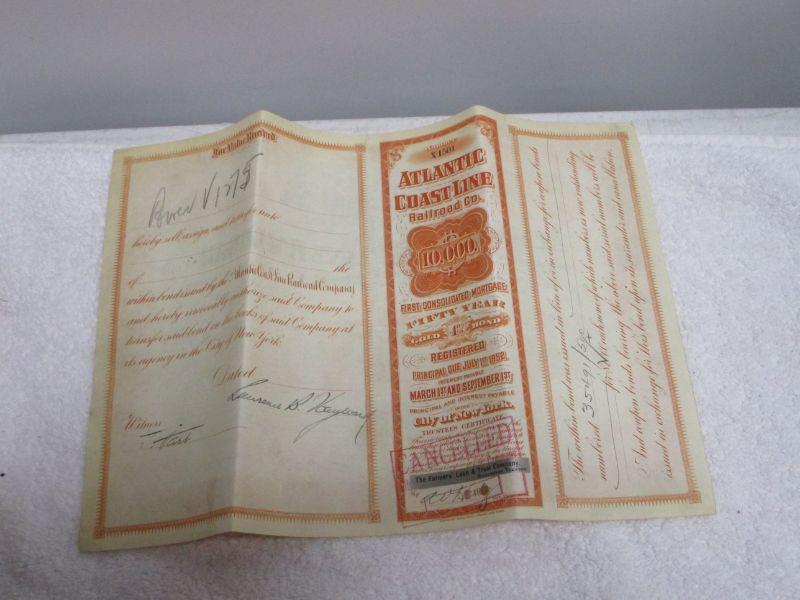 For Value Received
hereby sell, assign, and transfer unto
of the
within bond issued by the Atlantic Coast Line Railroad Company
and hereby irrevocably authorize said Company to
transfer said bond on the books of said Company at
its agency in the City of New York.
Dated
Lawrence B.
Witness
ATLANTIC
COAST LINE
Railroad Co.
10,000.
FIRST CONSOLIDATED MORTGAGE
FIFTY YEAR
GOLD 4% BOND
REGISTERED
PRINCIPAL DUE JULY 1ST 1952,
INTEREST PAYABLE
MARCH 1ST AND SEPTEMBER 1ST.
PRINCIPAL AND INTEREST PAYABLE
IN THE
City of New York.
TRUSTEE'S CERTIFICATE.
CANCELLED
The Farmers' Loan & Trust Company,
By
The within bond was issued in lieu of or in exchange for coupon bonds
numbered
for $1,000 each, none of which numbers is now outstanding
that coupon bonds bearing the above mentioned numbers will be
issued in exchange for this bond upon its surrender and cancellation.